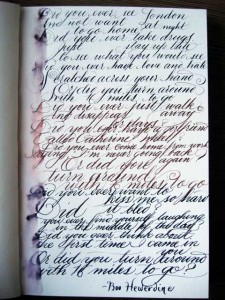 Did you ever see London
And not want at night
to go home
Did you ever take drugs
Just stay up late
to see what you would see
Did you ever have love and hate
Scratched across your hand
Or did you turn around
with miles to go
Did you ever just walk
And disappear away
for days
Did you ever have a girlfriend
called Catherine
Did you ever come home from work
saying I'm never going back
again
Or did you
turn around
with miles to go
Did you ever want to
kiss me so hard
Did it bleed
Did you ever find yourself laughing
in the middle of the day
Did you ever think about
the first time I came in
you
Or did you turn around
with 18 miles to go?
-Boo Hewerdine